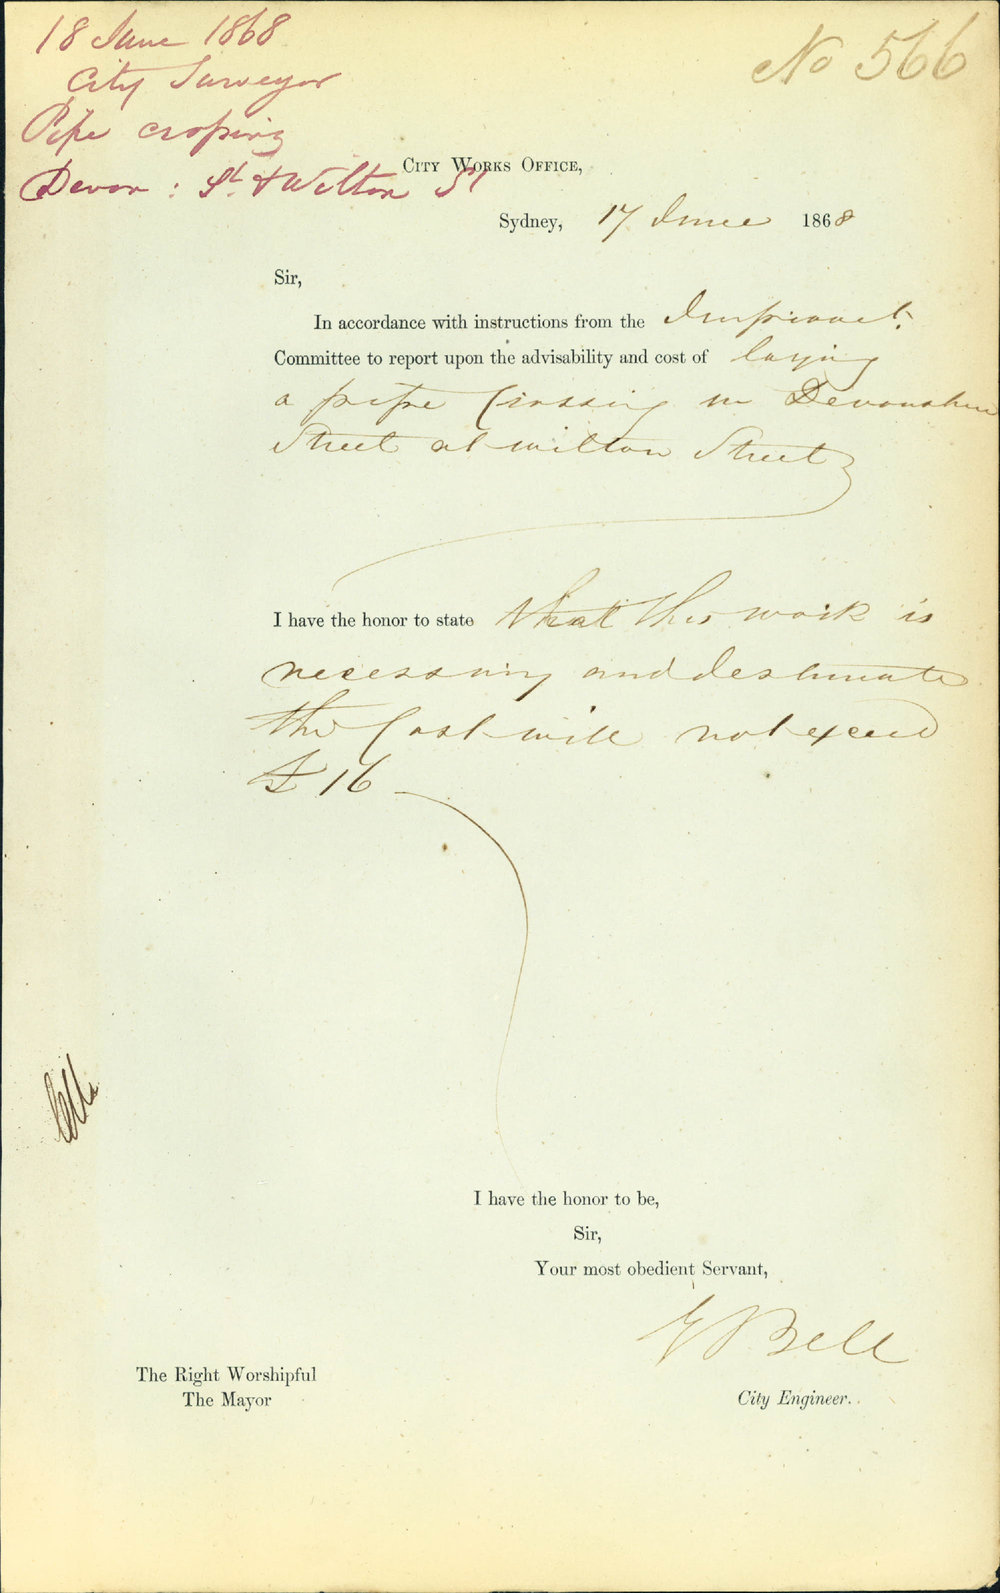 18 June 1868
City Surveyor
Pipe crossing
Devon : St & Wilton St
No 566
City Works Office,
Sydney, 17 June 1868
Sir,
In accordance with instructions from the Improvet.
Committee to report upon the advisability and cost of laying
a pipe Crossing in Devonshire
Street at Wilton Street
I have the honor to state that this work is
necessary and I estimate
the Cost will not exceed
£ 16
I have the honor to be,
Sir,
Your most obedient Servant,
E Bell
The Right Worshipful
The Mayor
City Engineer.